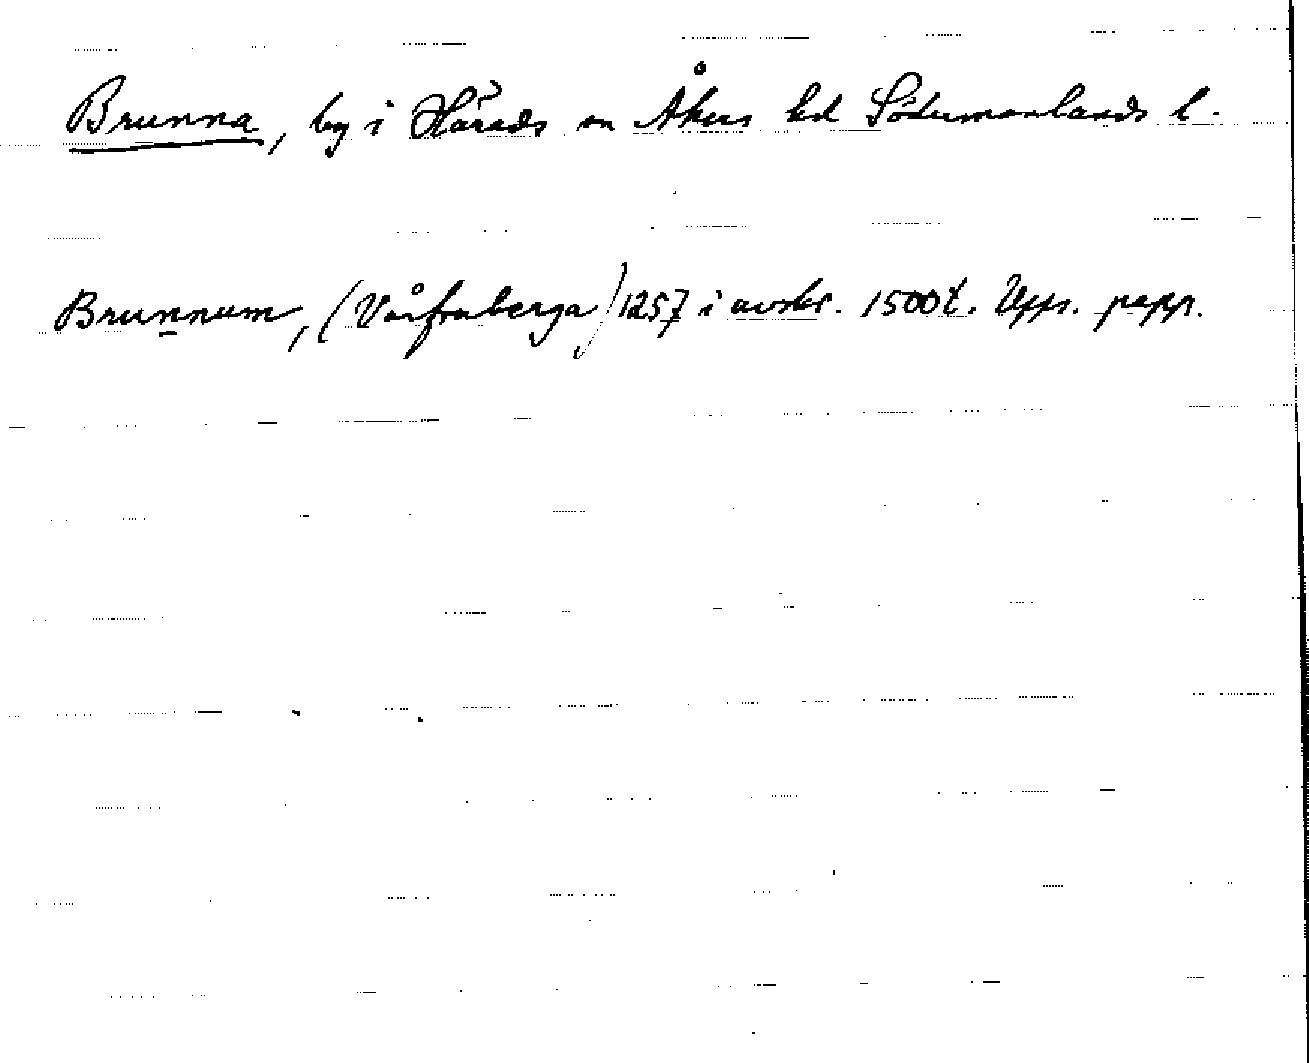 Brunna, by i Härads sn Åkers hd Södermanlands l.
Brunnum, (Vårfruberga) 1257 i avskr. 1500t. Upps. papp.